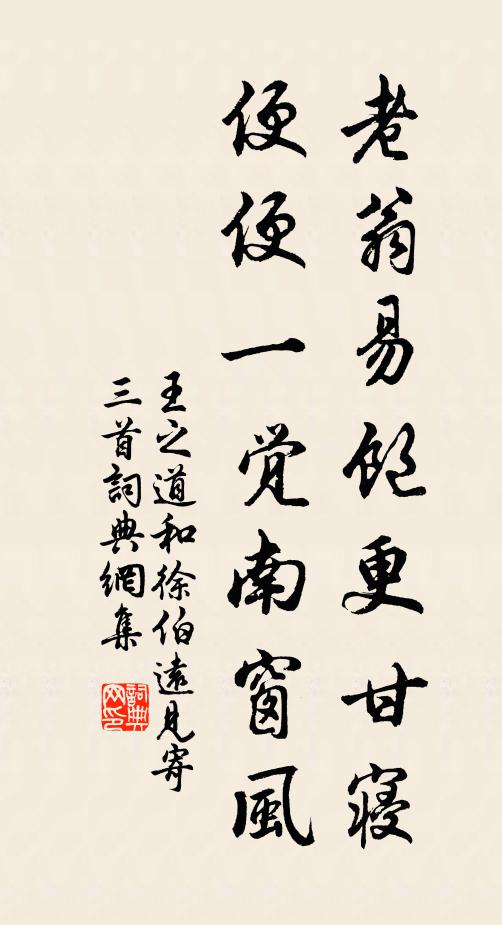 老翁易飽更甘寝
便便一觉南窗風
王之道和徐伯遠見寄
三首詞典網集
詞典
网印